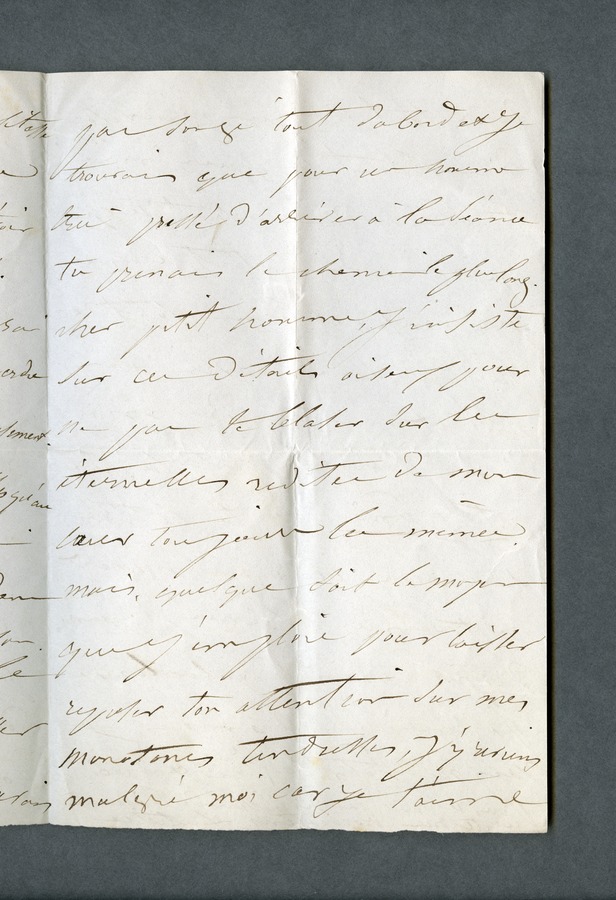 pas songé tout d'abord et je
trouvais que pour un homme
très pressé d'arriver à la séance
tu prenais le chemin le plus long.
cher petit homme, j'insiste
sur ces détails oiseux pour
ne pas te blaser sur les
éternelles redites de mon
cœur toujours les mêmes.
mais, quelque soit le moyen
que j'emploie pour laisser
reposer ton attention sur mes
monotones tendresses, j'y reviens
malgré moi car je t'aime